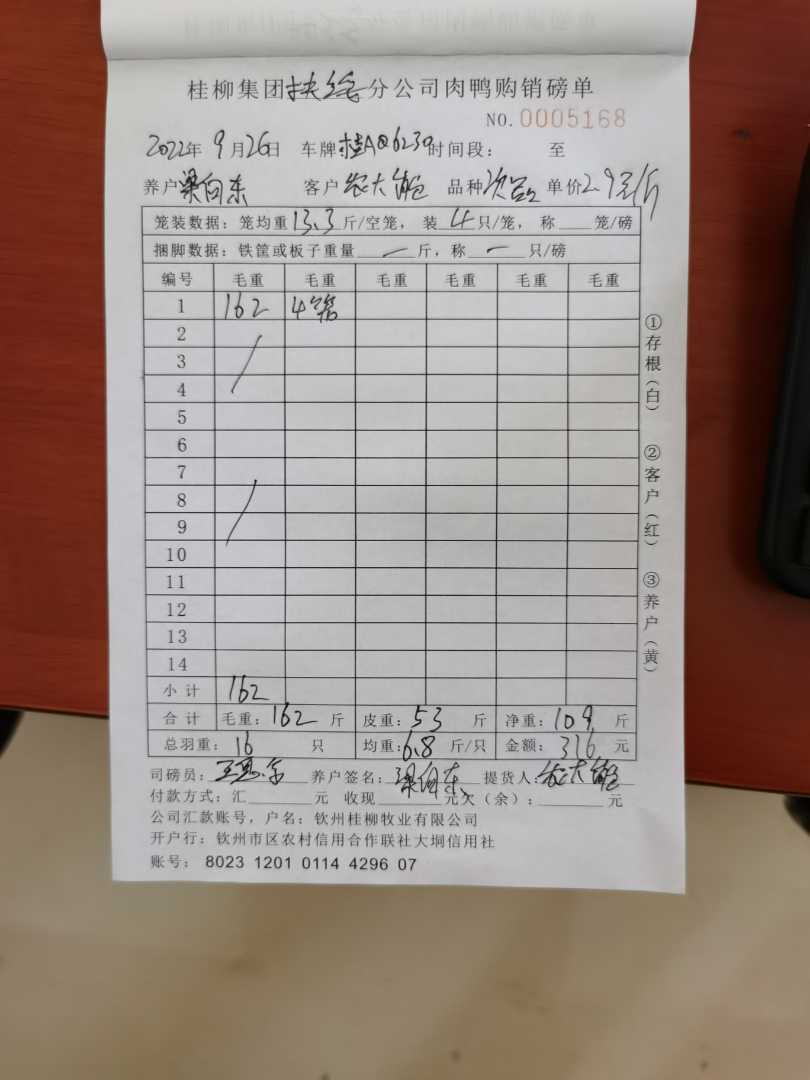 桂柳集团扶绥分公司肉鸭购销磅单
NO. 0005168
2022年 9月26日 车牌桂A 6230 时间段： 至
养户梁向东 客户农大 品种次 单价2.9元/斤
笼装数据：笼均重13.3斤/空笼，装4只/笼，称 笼/磅
捆脚数据：铁筐或板子重量一斤，称一只/磅
编号 毛重 毛重 毛重 毛重 毛重 毛重
1 162 4笼
2
3
4
5
6
7
8
9
10
11
12
13
14
小计 162
合计 毛重：162斤 皮重：53斤 净重：109斤
总羽重：16只 均重：6.8斤/只 金额：316元
司磅员：王 养户签名：梁向东 提货人：农大
付款方式：汇 元 收现 元欠（余）： 元
公司汇款账号，户名：钦州桂柳牧业有限公司
开户行：钦州市区农村信用合作联社大垌信用社
账号： 8023 1201 0114 4296 07
①存根（白）
②客户（红）
③养户（黄）